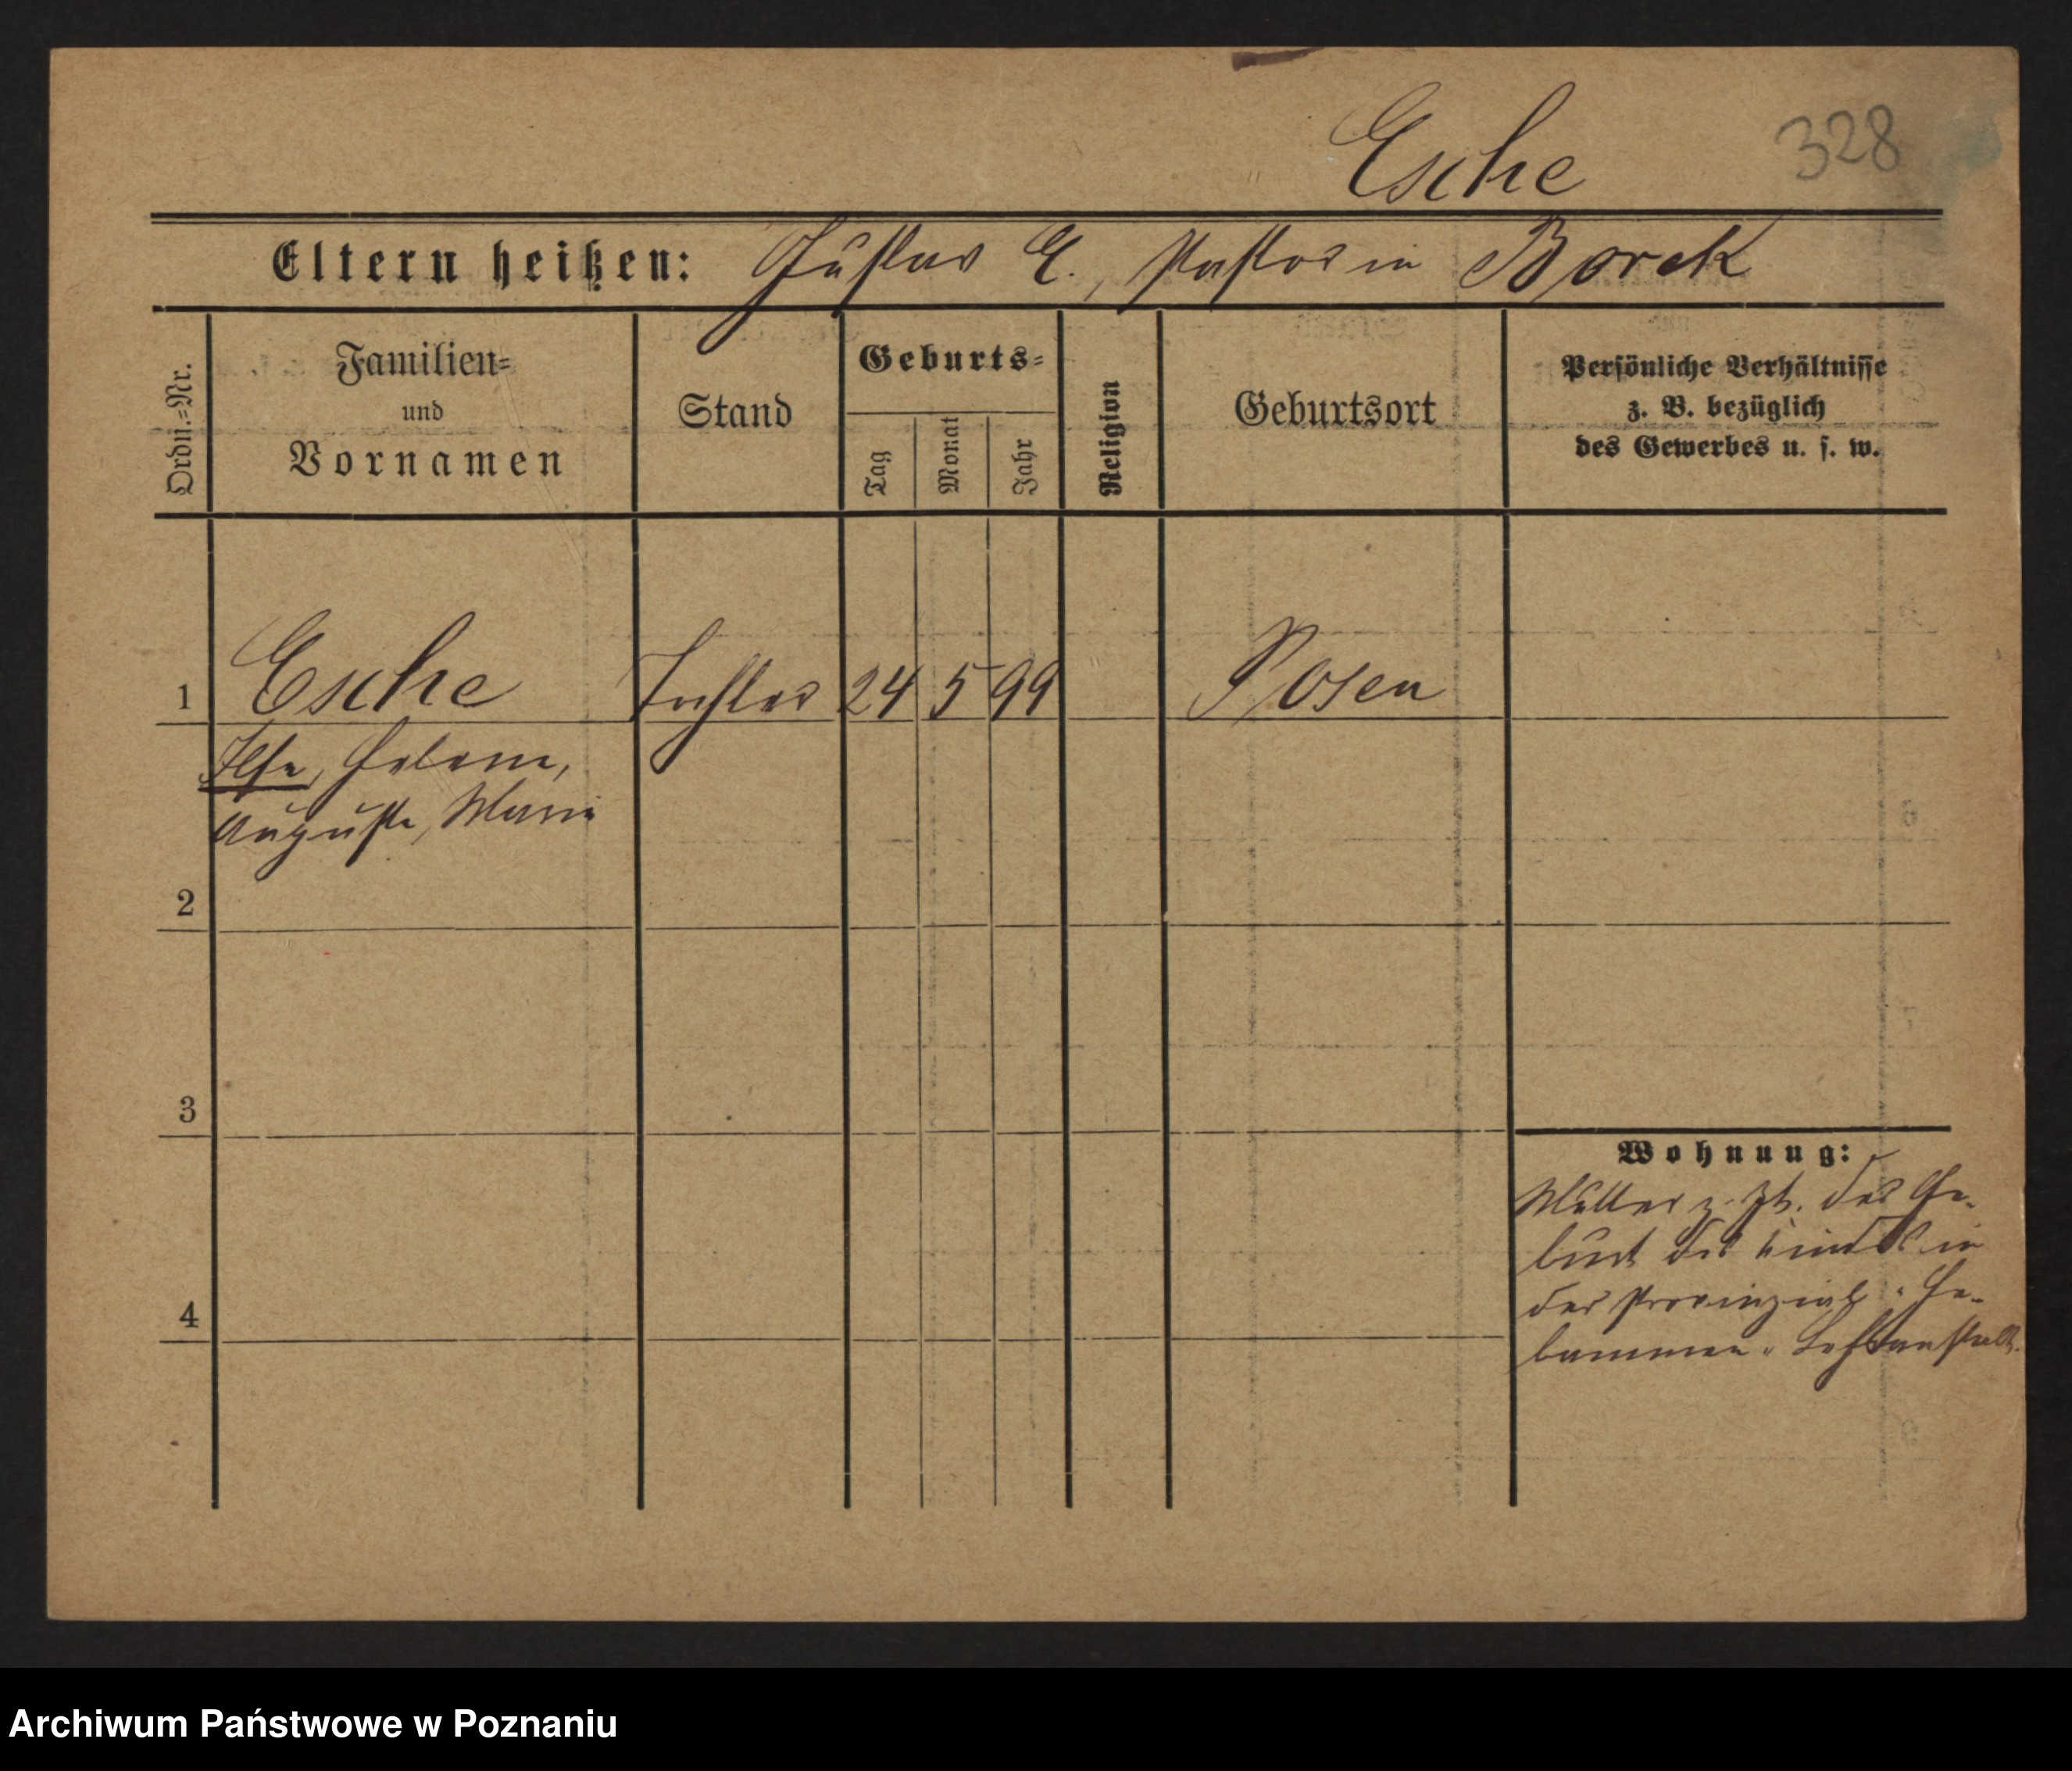 328
Esche
Eltern heißen: Gustav E., Pastor in Borek
Ordn.=Nr.
Familien=
und
Vornamen
Stand
Geburts=
Tag
Monat
Jahr
Religion
Geburtsort
Persönliche Verhältnisse
z. B. bezüglich
des Gewerbes u. s. w.
1 Esche Tochter 24 5 99 Posen
Ilse, Helene,
Auguste, Marie
2
3
4
Wohnung:
Mutter z. Zt. der Ge-
burt des Kindes in
der Provinzial-He-
bammen-Lehranstalt.
Archiwum Państwowe w Poznaniu